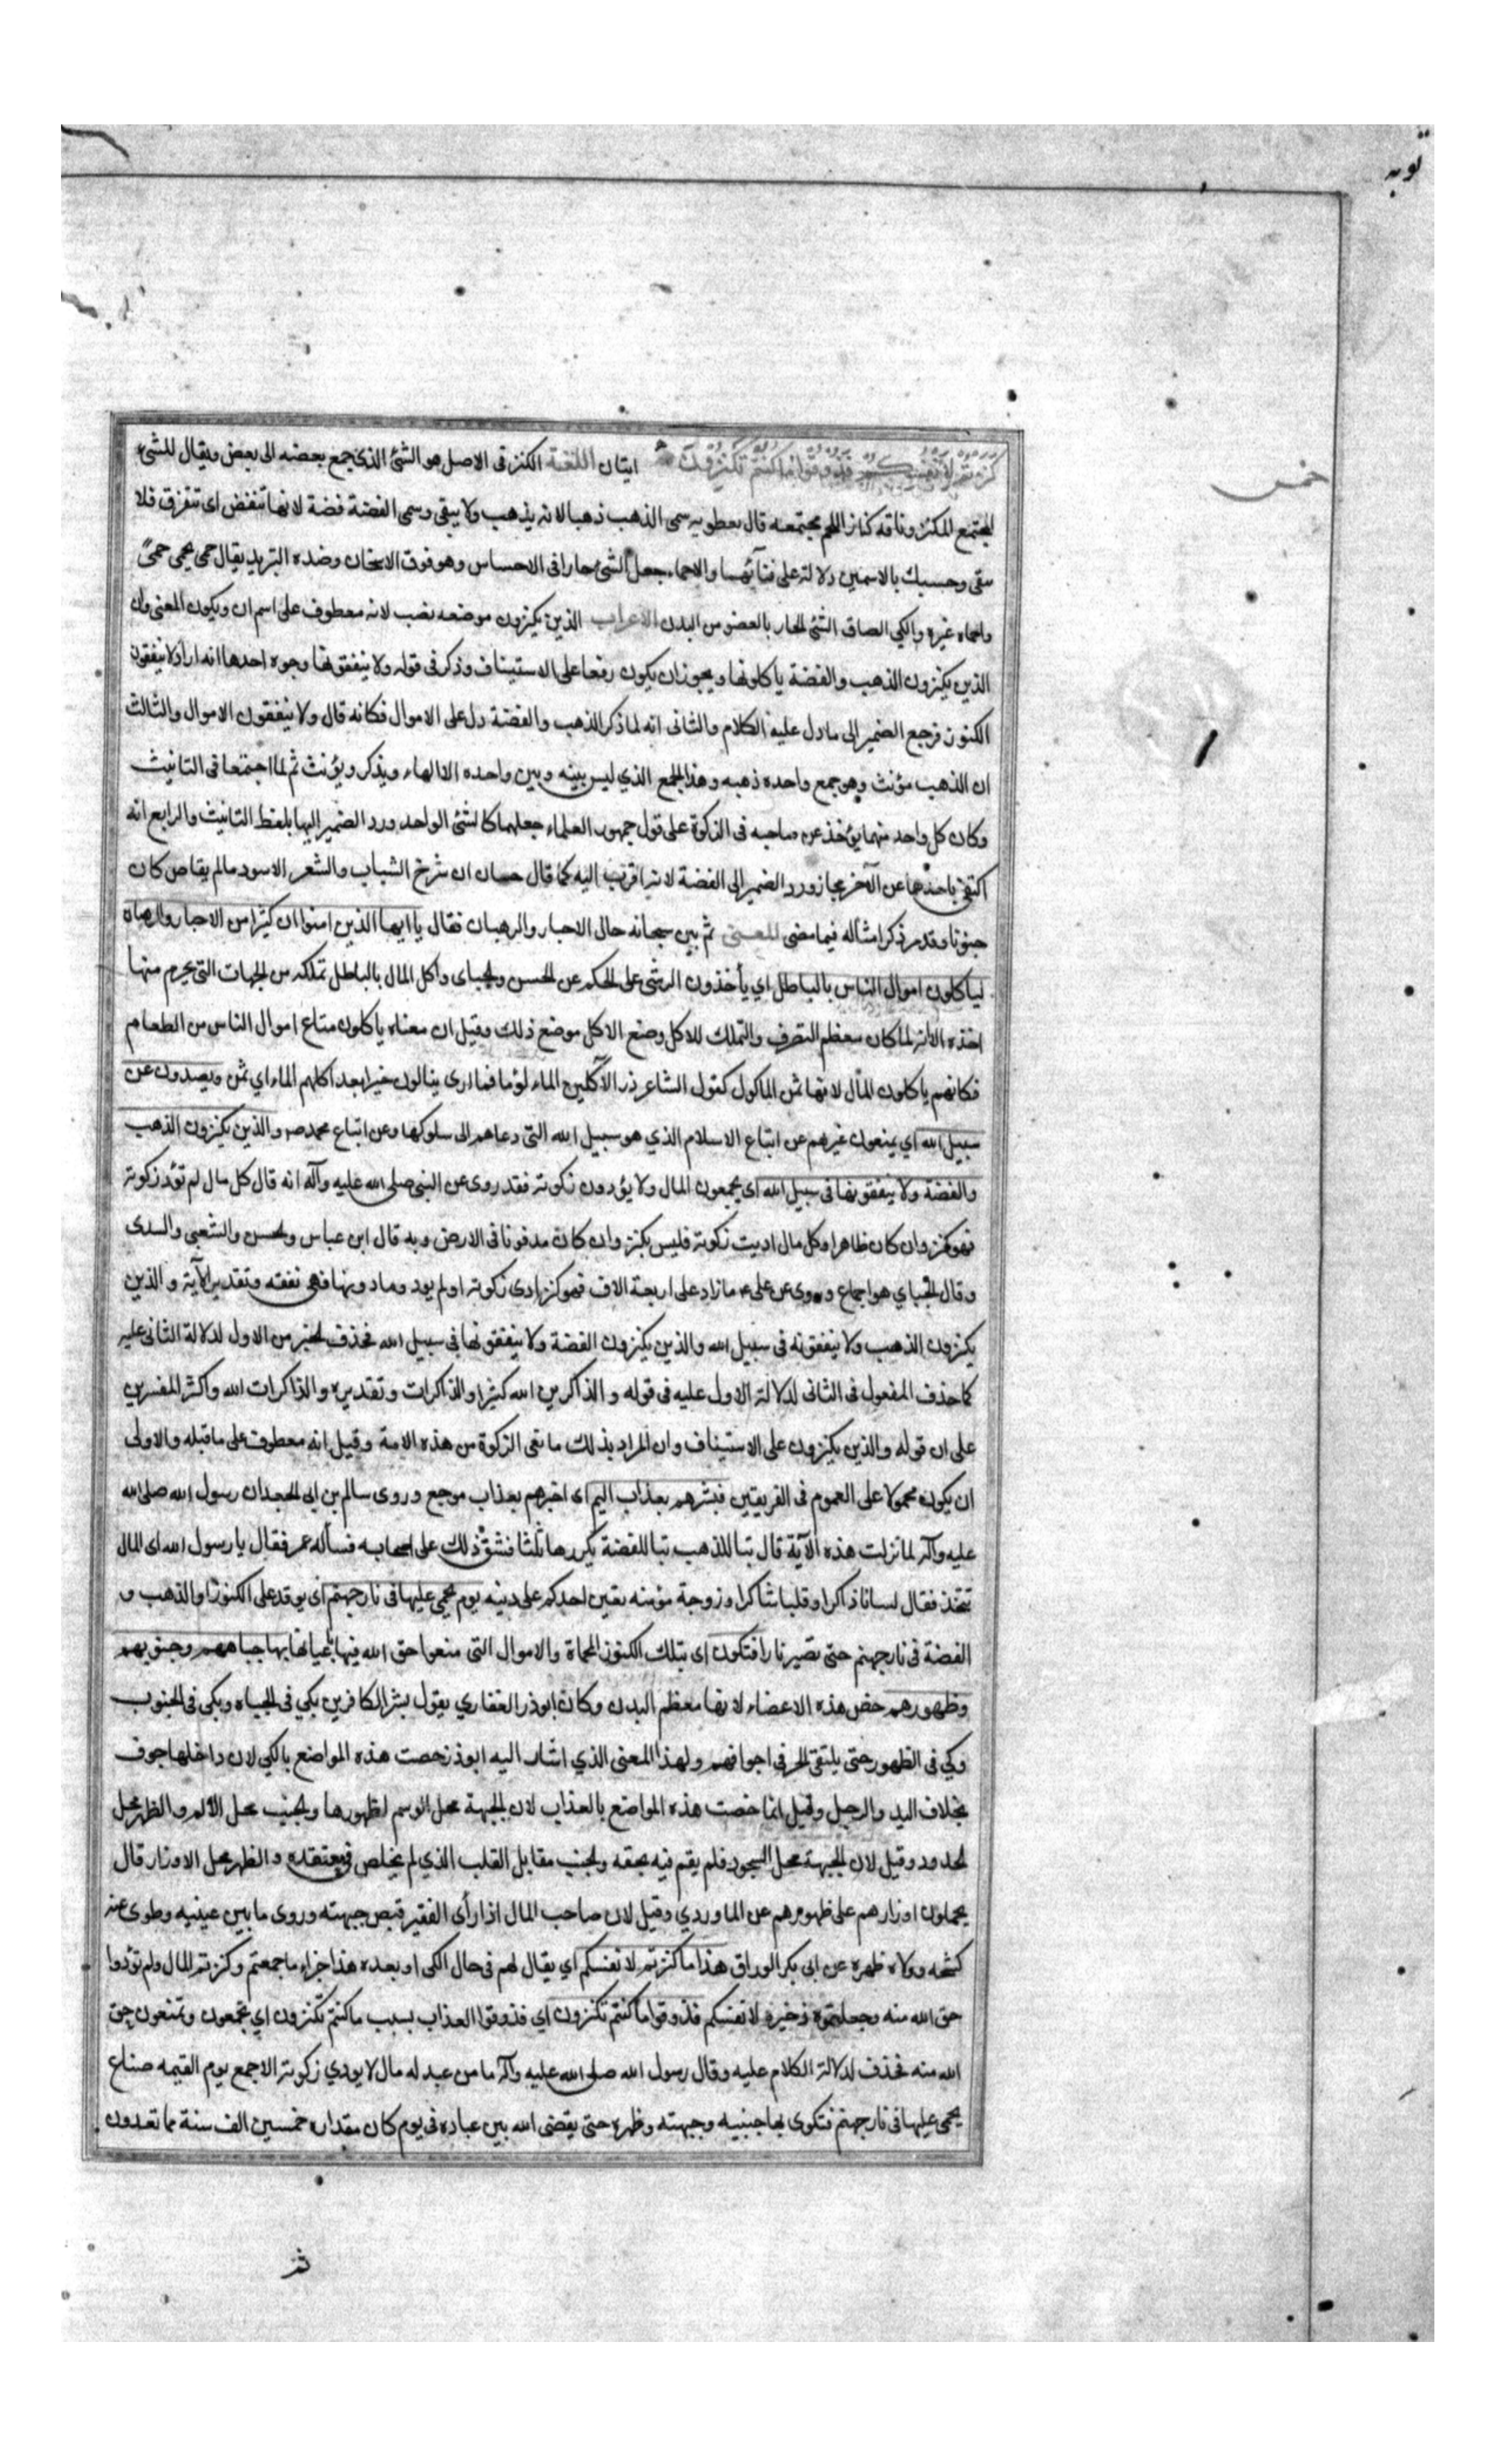 توبه
خمس
كنزتم لانفسكم فذوقوا ما كنتم تكنزون ايتان اللغة الكنز فى الاصل هو الشئ الذى جمع بعضه الى بعض ويقال للشئ
المجتمع المكتنز وناقه كناز اللحم مجتمعه قال نعطويه سمى الذهب ذهبا لانه يذهب ولا يبقى وسمى الفضة فضة لانها تنفض اى تتفرق فلا
تبقى وحسبك بالاسمين دلالة على فنآئهما والاحماء جعل الشئ حارا فى الاحساس وهو فوق الاسخان وضده التبريد يقال حمى يحمى حمىً
واحماه غيره والكي الصاق الشئ الحار بالعضو من البدن الاعراب الذين يكنزون موضعه نصب لانه معطوف على اسم ان ويكون المعنى وان
الذين يكنزون الذهب والفضة ياكلونها ويجوز ان يكون رفعا على الاستيناف وذكر فى قوله ولا ينفقونها وجوه احدها انه اراد لا ينفقون
الكنوز فرجع الضمير الى ما دل عليه الكلام والثانى انه لما ذكر الذهب والفضة دل على الاموال فكانه قال ولا ينفقون الاموال والثالث
ان الذهب مؤنث وهو جمع واحده ذهبه وهذا الجمع الذي ليس بينه وبين واحده الا الهاء ويذكر ويؤنث ثم لما اجتمعا فى التانيث
وكان كل واحد منهما يؤخذ عن صاحبه فى الزكوة على قول جمهور العلماء جعلهما كالشئ الواحد ورد الضمير اليها بلفظ التانيث والرابع انه
اكتفى باحدهما عن الآخر مجازورد الضمير الى الفضة لانه اقرب اليه كما قال حسان ان شرخ الشباب والشعر الاسود مالم يعاص كان
جنونا وقد مر ذكر امثاله فيما مضى المعنى ثم بين سبحانه حال الاحبار والرهبان فقال يا ايها الذين امنوا ان كثيرا من الاحبار والرهبان
لياكلون اموال الناس بالباطل اي يأخذون الرشى على الحكم عن الحسن والجباى واكل المال بالباطل تملكه من الجهات التى يحرم منها
اخذه الا انه لما كان معظم التصرف والتملك للاكل وضع الاكل موضع ذلك وقيل ان معناه ياكلون متاع اموال الناس من الطعام
فكانهم ياكلون المال لانها ثمن الماكول كقول الشاعر ذر الآكلين الماء لؤما فما ارى ينالون خيرا بعد اكلهم الماء اي ثمن ويصدون عن
سبيل الله اي يمنعون غيرهم عن اتباع الاسلام الذي هو سبيل الله التى دعاهم الى سلوكها وعن اتباع محمد ص والذين يكنزون الذهب
والفضة ولا ينفقونها فى سبيل الله اى يجمعون المال ولا يؤدون زكوته فقد روى عن النبى صلى الله عليه وآله انه قال كل مال لم تؤد زكوته
فهو كنز وان كان ظاهرا وكل مال اديت زكوته فليس بكنز وان كان مدفونا فى الارض وبه قال ابن عباس والحسن والشعبى والسدى
وقال الجباي هو اجماع وروى عن على ع ما زاد على اربعة الاف فهو كنز ادى زكوته او لم يود وما دونها فهى نفقه وتقدير الآية والذين
يكنزون الذهب ولا ينفقونه فى سبيل الله والذين يكنزون الفضة ولا ينفقونها فى سبيل الله فحذف الخبر من الاول لدلالة الثانى عليه
كما حذف المفعول فى الثانى لدلالة الاول عليه فى قوله والذاكرين الله كثيرا والذاكرات وتقديره والذاكرات الله واكثر المفسرين
على ان قوله والذين يكنزون على الاستيناف وان المراد بذلك ما نعى الزكوة من هذه الامة وقيل انه معطوف على ما قبله والاولى
ان يكون محمولا على العموم فى الفريقين فبشرهم بعذاب اليم اى اخبرهم بعذاب موجع وروى سالم بن ابى الجعد ان رسول الله صلى الله
عليه وآله لما نزلت هذه الآية قال تبا للذهب تبا للفضة يكررها ثلثا فشق ذلك على اصحابه فسأله عمر فقال يا رسول الله اى المال
نتخذ فقال لسانا ذاكرا وقلبا شاكرا وزوجة مؤمنه تعين احدكم على دينه يوم يحمى عليها فى نار جهنم اى يوقد على الكنوز او الذهب و
الفضة فى نار جهنم حتى تصير نارا فتكوى اى بتلك الكنوز المحماة والاموال التى منعوا حق الله فيها باعيانها بها جباههم وجنوبهم
وظهورهم خص هذه الاعضاء لانها معظم البدن وكان ابوذر الغفاري يقول بشر الكافرين بكي فى الجباه وبكى فى الجنوب
وكي فى الظهور حتى يلتقى الحر فى اجوافهم ولهذا المعنى الذي اشار اليه ابوذر خصت هذه المواضع بالكي لان داخلها جوف
بخلاف اليد والرجل وقيل انما خصت هذه المواضع بالعذاب لان الجبهة محل الوسم لظهورها والجنب محل الالم والظهر محل
الحدود وقيل لان الجبهة محل السجود فلم يقم فيه بحقه والجنب مقابل القلب الذي لم يخلص فى معتقده والظهر محل الاوزار قال
يحملون اوزارهم على ظهورهم عن الماوردي وقيل لان صاحب المال اذا رأى الفقير قبض جبهته وزوى ما بين عينيه وطوى عنه
كشحه وولاه ظهره عن ابى بكر الوراق هذا ما كنزتم لانفسكم اي يقال لهم فى حال الكى او بعده هذا جزاء ما جمعتم وكنزتم المال ولم تؤدوا
حق الله منه وجعلتموه ذخيرة لانفسكم فذوقوا ما كنتم تكنزون اي فذوقوا العذاب بسبب ما كنتم تكنزون اي تجمعون وتمنعون حق
الله منه فحذف لدلالة الكلام عليه وقال رسول الله صلى الله عليه وآله ما من عبد له مال لا يودي زكوته الا جمع يوم القيمه صفاع
يحمى عليها فى نار جهنم فتكوى بها جنبيه وجبهته وظهره حتى يقضى الله بين عباده فى يوم كان مقداره خمسين الف سنة مما تعدون
ثم